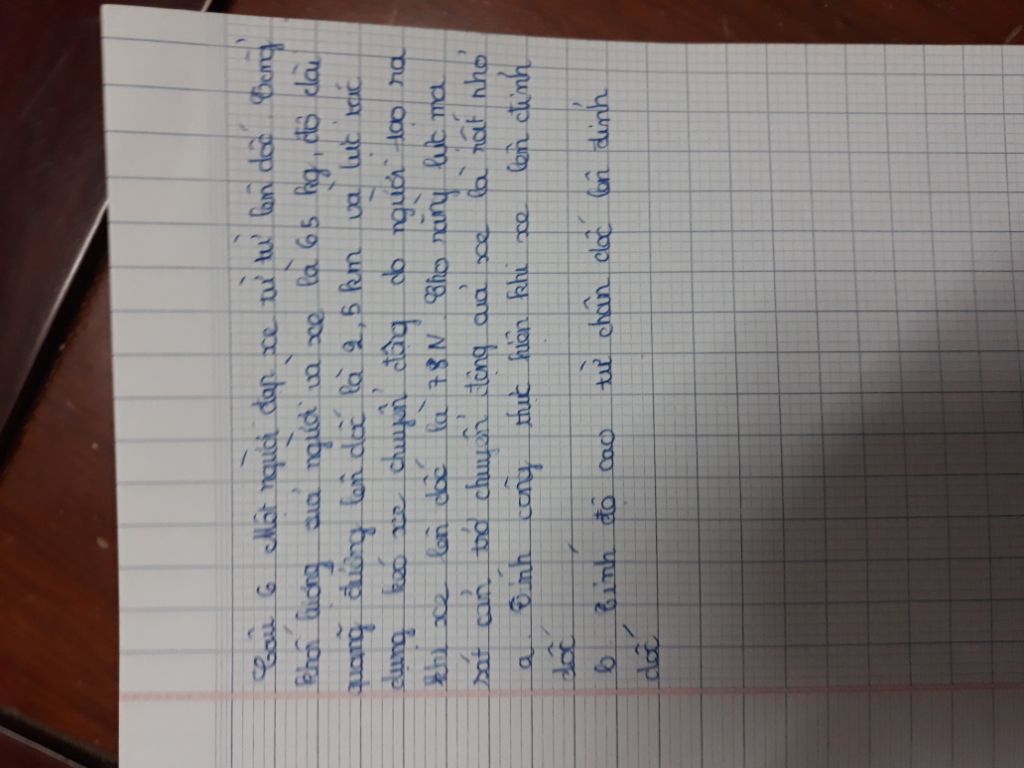 Câu 6 Một người đạp xe từ từ lên dốc. Tổng
khối lượng của người và xe là 65 kg, độ dài
quãng đường lên dốc là 2,5 km và lực tác
dụng kéo xe chuyển động do người tạo ra
khi xe lên dốc là 78N. Cho rằng lực ma
sát cản trở chuyển động của xe là rất nhỏ
a. Tính công thực hiện khi xe lên đỉnh
dốc
b Tính độ cao từ chân dốc lên đỉnh
dốc